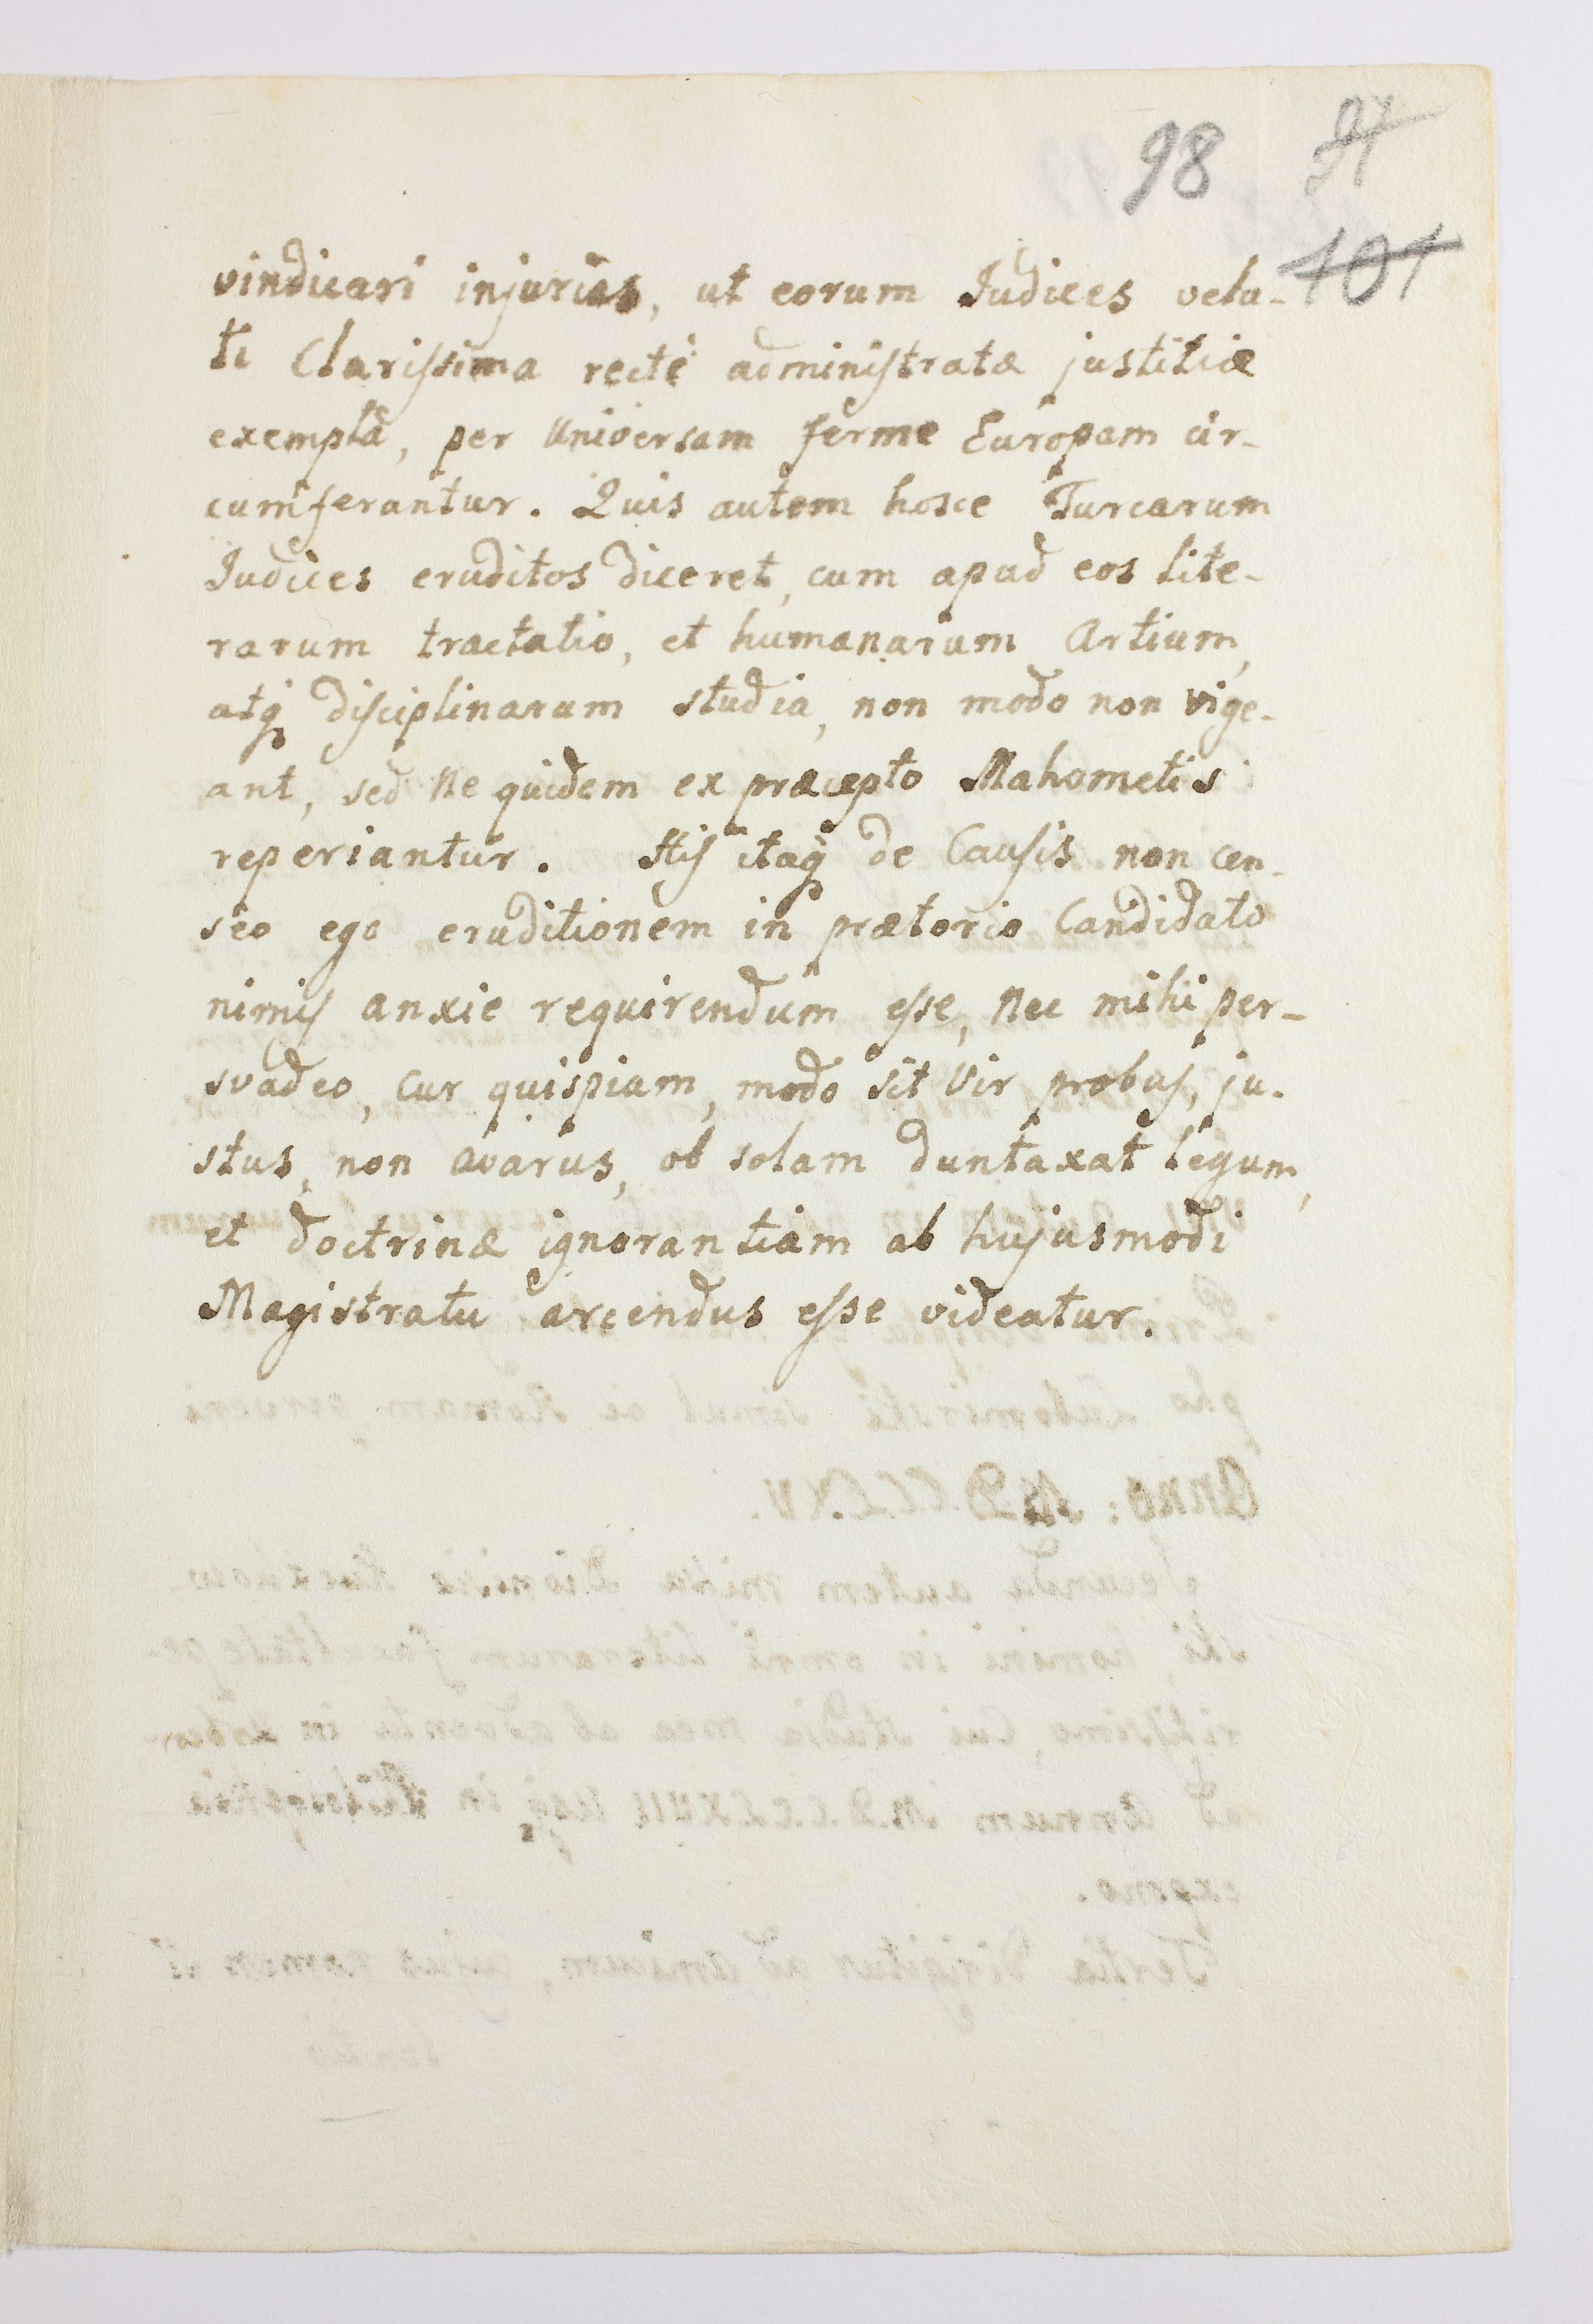 98 97
101
vindicari injurias, ut eorum Judices velu-
ti Clarissima rectè administratæ justitiæ
exempla, per Universam ferme Europam cir-
cumferantur. Quis autem hosce Turcarum
Judices eruditos diceret, cum apud eos lite-
rarum tractatio, et humanarum Artium,
atq disciplinarum studia, non modo non vige-
ant, sed ne quidem ex præcepto Mahometis
reperiantur. His itaq de Causis non cen-
seo ego eruditionem in prætorio Candidato
nimis anxie requirendum esse, nec mihi per-
svadeo, cur quispiam, modo sit Vir probus, ju-
stus, non avarus, ob solam duntaxat legum,
et doctrinæ ignorantiam ab hujusmodi
Magistratu arcendus esse videatur.